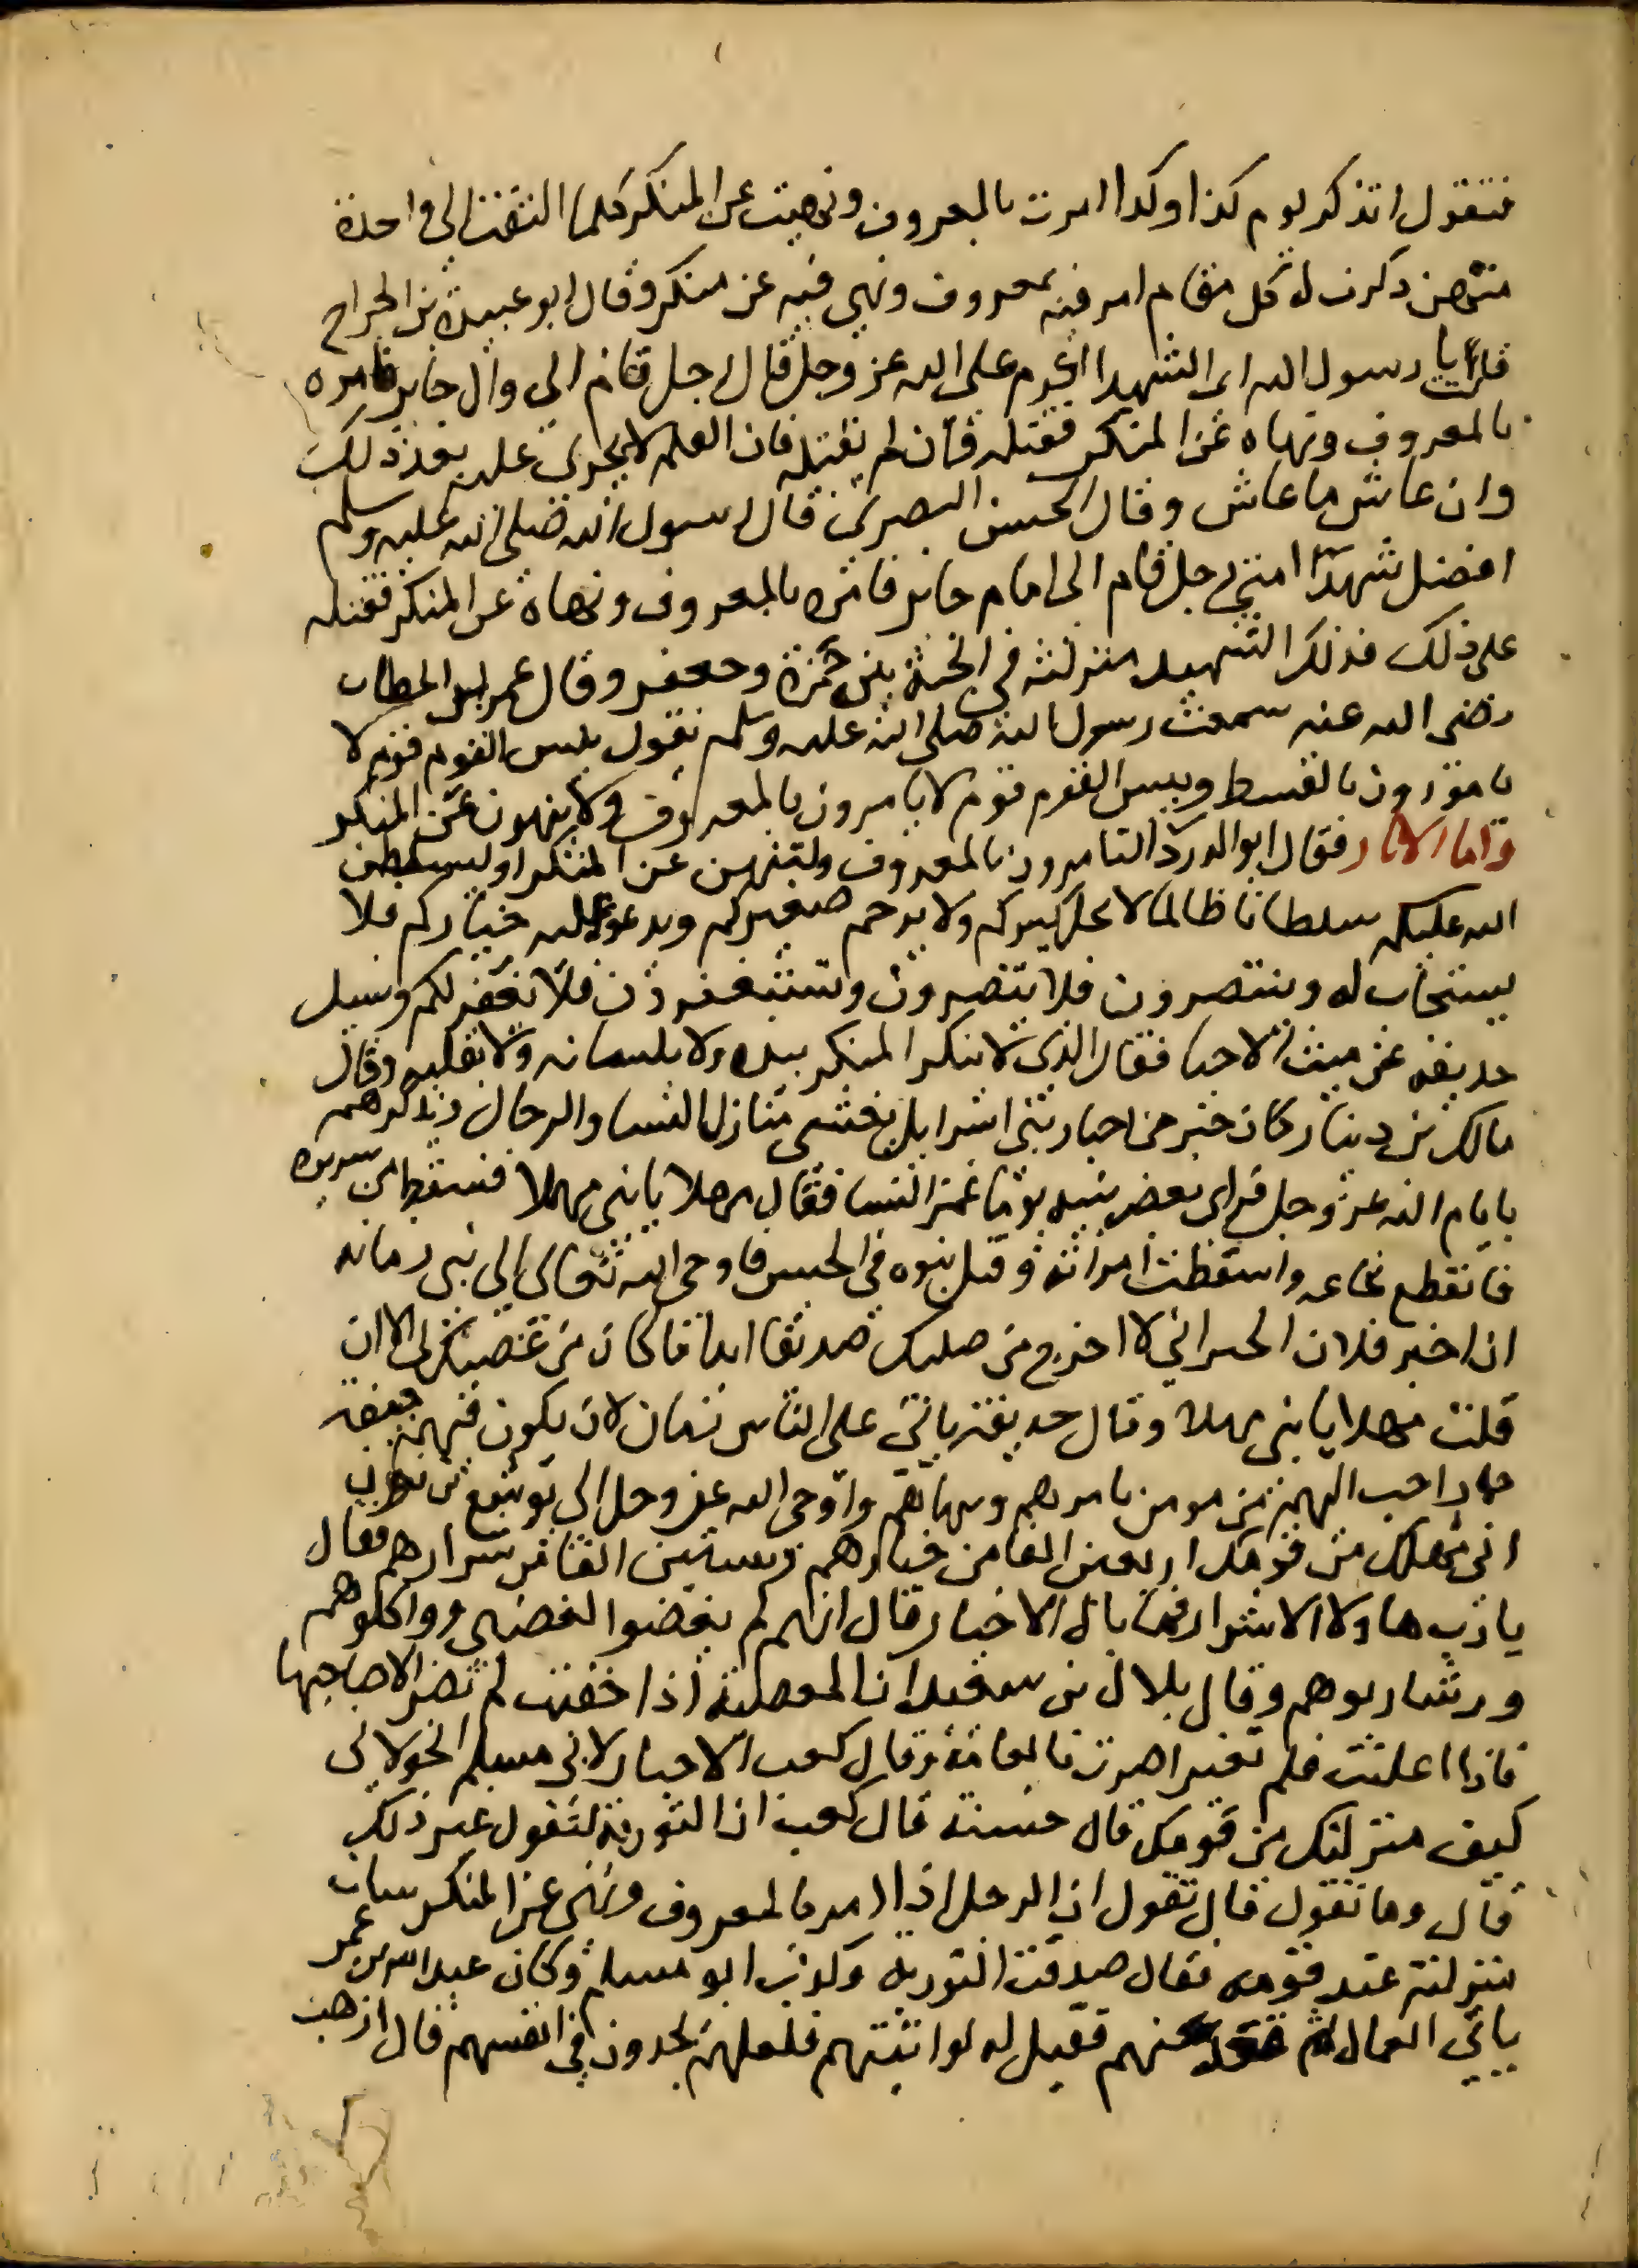 فتقول اتذكر يوم كذا وكذا امرت بالمعروف ونهيت عن المنكر كلما التفت الى واحدة
منهن ذكرت له كل مقام امر فيه بمعروف ونهى فيه عن منكر وقال ابو عبيدة بن الجراح
قلت يا رسول الله اى الشهدا اكرم على الله عز وجل قال رجل قام الى وال جاير فامره
بالمعروف ونهاه عن المنكر فقتله فان لم يقتله فان القلم لا يجرى عليه بعد ذلك
وان عاش ما عاش وقال الحسن البصرى قال رسول الله صلى الله عليه وسلم
افضل شهدا امتى رجل قام الى امام جاير فامره بالمعروف ونهاه عن المنكر فقتله
على ذلك فذلك الشهيد منزلته في الجنة بين حمزة وجعفر وقال عمر بن الخطاب
رضى الله عنه سمعت رسول الله صلى الله عليه وسلم يقول بيس القوم قوم لا
يامرون بالقسط وبيس القوم قوم لا يامرون بالمعروف ولا ينهون عن المنكر
واما الاثار فقال ابو الدردا لتامرون بالمعروف ولتنهن عن المنكر او ليسلطن
الله عليكم سلطانا ظالما لا يجل كبيركم ولا يرحم صغيركم ويدعو عليه خياركم فلا
يستجاب له وينتصرون فلا ينتصرون وتستغفرون فلا يغفر لكم وسيل
حذيفه عن ميت الاحيا فقال الذى لا ينكر المنكر بيده ولا بلسانه ولا بقلبه وقال
مالك بن دينار كان حبر من احبار بنى اسرايل يغشى منازله النسا والرجال ويذكرهم
بايام الله عز وجل فراى بعض بنيه يوما غمز النسا فقال مهلا يا بنى مهلا فسقط من سريره
فانقطع نخاعه واسقطت امراته وقتل بنوه في الجيش فاوحى الله تعالى الى نبى زمانه
ان اخبر فلان الحبر انى لا اخرج من صلبك صديقا ابدا ما كان من غضبك لى الا ان
قلت مهلا يا بنى مهلا وقال حذيفة ياتي على الناس زمان لان يكون فيهم جيفة
حمار احب اليهم من مومن يامرهم وينهاهم واوحى الله عز وجل الى يوشع بن نون
انى مهلك من قومك اربعين الفا من خيارهم وستين الفا من شرارهم فقال
يا رب هاولا الاشرار فما بال الاخيار قال انهم لم يغضبوا لغضبى وواكلوهم
وشاربوهم وقال بلال بن سعد ان المعصية اذا خفيت لم تضر الا صاحبها
فاذا اعلنت فلم تغير اضرت بالعامة وقال كعب الاحبار لابى مسلم الخولانى
كيف منزلتك من قومك قال حسنة قال كعب ان التورية لتقول غير ذلك
قال وما تقول قال تقول ان الرجل اذا امر بالمعروف ونهى عن المنكر سات
منزلته عند قومه فقال صدقت التورية وكذب ابو مسلم وكان عبد الله بن عمر
ياتي العمال ثم قعد عنهم فقيل له لو اتيتهم فلعلهم يجدون في انفسهم قال ارهب